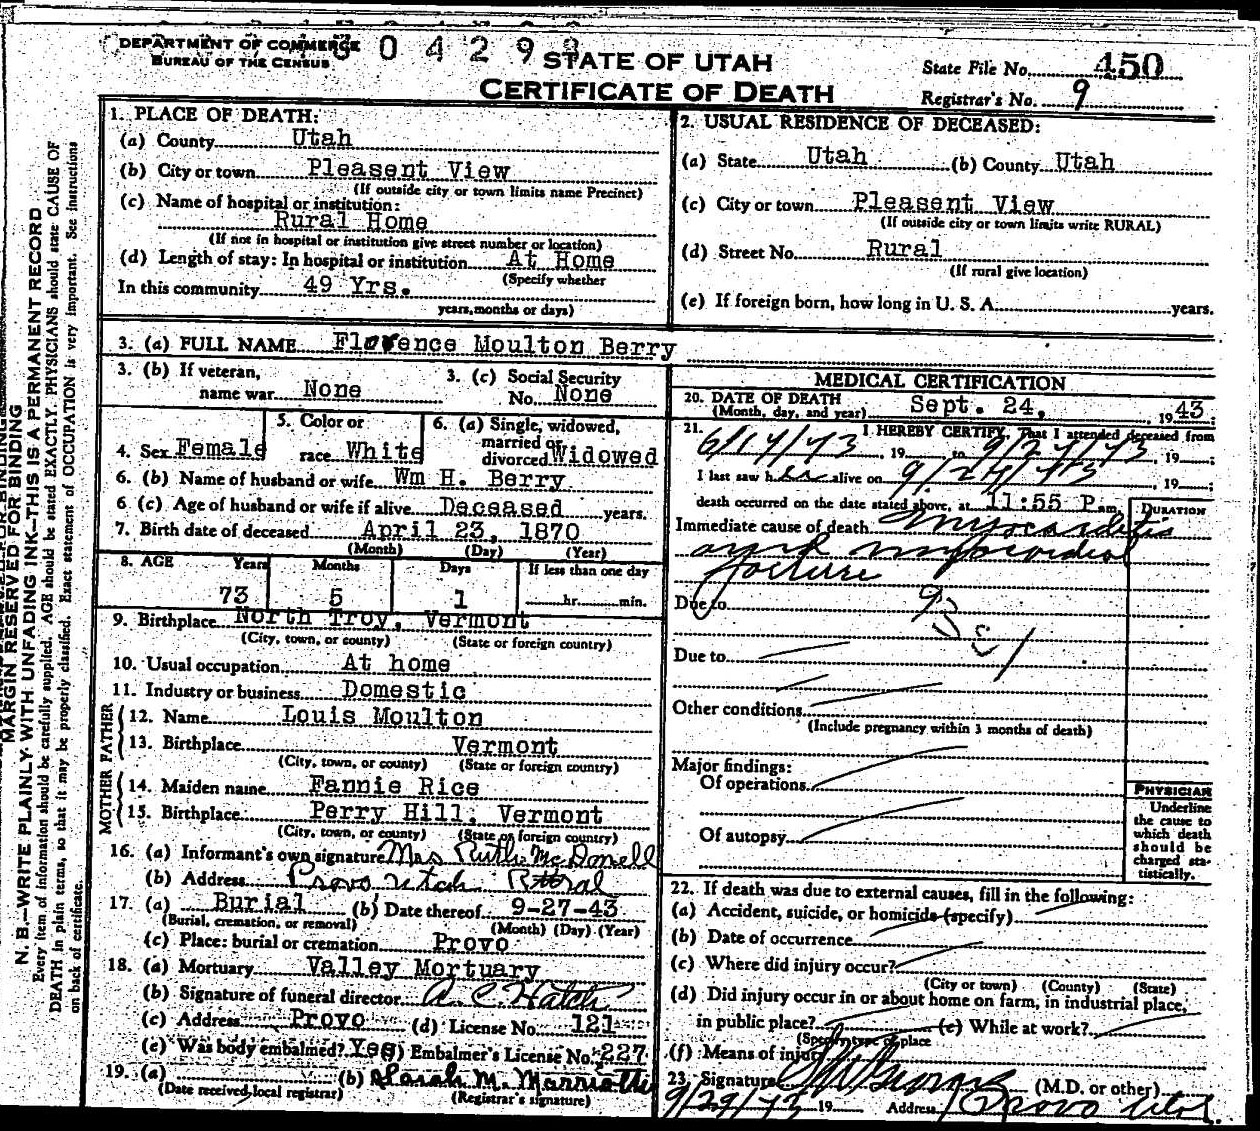 DEPARTMENT OF COMMERCE
BUREAU OF THE CENSUS
0 4 2 9
STATE OF UTAH
CERTIFICATE OF DEATH
State File No. 450
Registrar's No. 9
1. PLACE OF DEATH:
(a) County Utah
(b) City or town Pleasent View
(If outside city or town limits name Precinct)
(c) Name of hospital or institution:
Rural Home
(If not in hospital or institution give street number or location)
(d) Length of stay: In hospital or institution At Home
(Specify whether
In this community 49 Yrs.
years, months or days)
2. USUAL RESIDENCE OF DECEASED:
(a) State Utah (b) County Utah
(c) City or town Pleasent View
(If outside city or town limits write RURAL)
(d) Street No. Rural
(If rural give location)
(e) If foreign born, how long in U. S. A. years.
3. (a) FULL NAME Florence Moulton Berry
3. (b) If veteran,
name war None
3. (c) Social Security
No. None
4. Sex Female
5. Color or
race White
6. (a) Single, widowed,
married or
divorced Widowed
6. (b) Name of husband or wife Wm H. Berry
6 (c) Age of husband or wife if alive Deceased years.
7. Birth date of deceased April 23, 1870
(Month) (Day) (Year)
8. AGE Years Months Days If less than one day
73 5 1 hr. min.
9. Birthplace North Troy, Vermont
(City, town, or county) (State or foreign country)
10. Usual occupation At home
11. Industry or business Domestic
FATHER
12. Name Louis Moulton
13. Birthplace Vermont
(City, town, or county) (State or foreign country)
MOTHER
14. Maiden name Fannie Rice
15. Birthplace Perry Hill, Vermont
(City, town, or county) (State or foreign country)
16. (a) Informant's own signature Mrs Ruth McDonell
(b) Address Provo Utah Rural
17. (a) Burial (b) Date thereof 9-27-43
(Burial, cremation, or removal) (Month) (Day) (Year)
(c) Place: burial or cremation Provo
18. (a) Mortuary Valley Mortuary
(b) Signature of funeral director A. C. Hatch
(c) Address Provo (d) License No. 121
(e) Was body embalmed? Yes (f) Embalmer's License No. 227
19. (a) (b) Sarah M.
(Date received local registrar) (Registrar's signature)
MEDICAL CERTIFICATION
20. DATE OF DEATH
(Month, day, and year) Sept. 24, 1943.
21. I HEREBY CERTIFY, That I attended deceased from
6/14/43, 19 to 9/24/43, 19 ;
I last saw her alive on 9/24/43, 19 ;
death occurred on the date stated above, at 11:55 P.m.
DURATION
Immediate cause of death Myocarditis
and myocardial
failure
Due to
Due to
Other conditions
(Include pregnancy within 3 months of death)
Major findings:
Of operations
Of autopsy
PHYSICIAN
Underline
the cause to
which death
should be
charged sta-
tistically.
22. If death was due to external causes, fill in the following:
(a) Accident, suicide, or homicide (specify)
(b) Date of occurrence
(c) Where did injury occur?
(City or town) (County) (State)
(d) Did injury occur in or about home on farm, in industrial place,
in public place? (e) While at work?
(Specify type of place
(f) Means of injury
23. Signature (M.D. or other)
9/29/43 19 Address Provo Utah.
MARGIN RESERVED FOR BINDING
N. B.—WRITE PLAINLY WITH UNFADING INK—THIS IS A PERMANENT RECORD
Every item of information should be carefully supplied. AGE should be stated EXACTLY. PHYSICIANS should state CAUSE OF
DEATH in plain terms, so that it may be properly classified. Exact statement of OCCUPATION is very important. See instructions
on back of certificate.